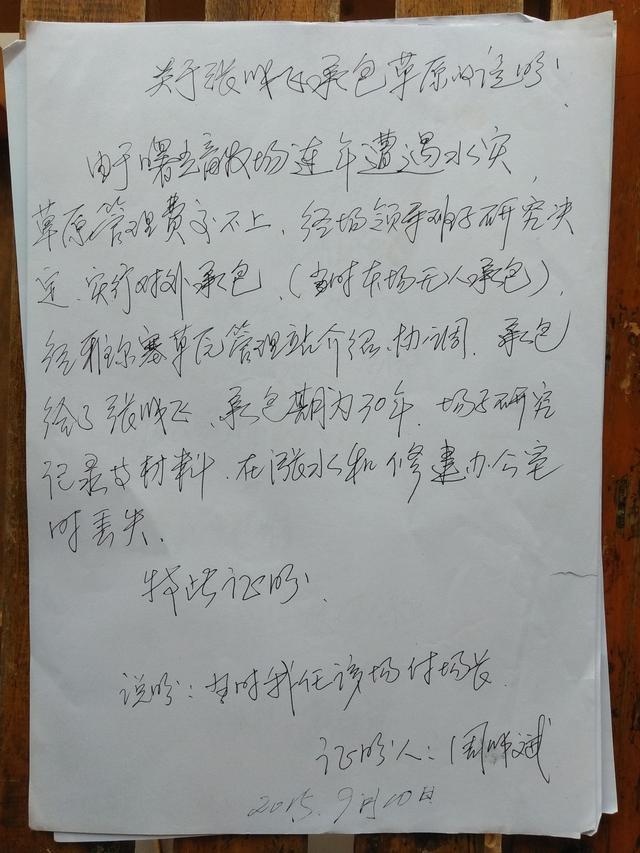 关于张晓飞承包草原的证明
由于曙光畜牧场连年遭遇水灾,
草原管理费交不上、经场领导班子研究决
定、实行对外承包、(当时本场无人承包),
经雅尔塞草原管理站介绍、协调、承包
给了张晓飞、承包期为30年、场子研究
记录等材料、在涨水和修建办公室
时丢失、
特此证明、
说明:当时我任该场付场长、
证明人:周 斌
2015.9月10日